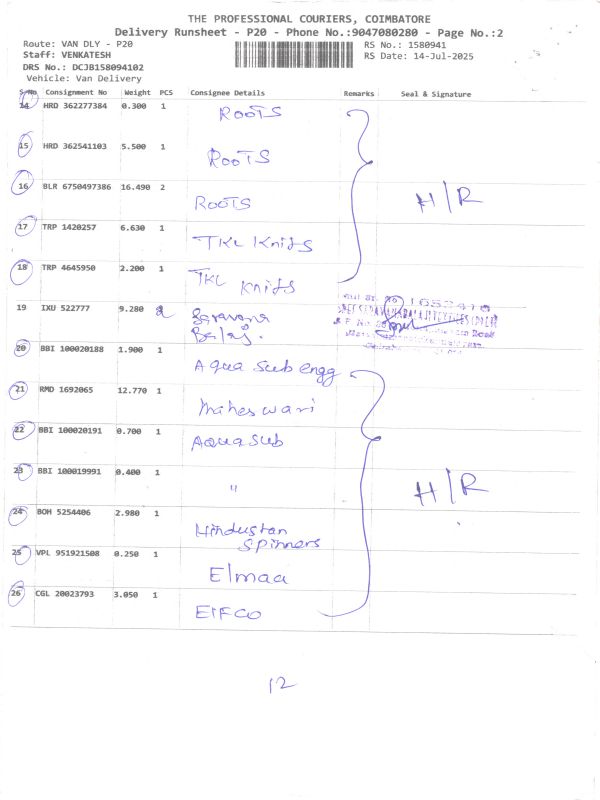 THE PROFESSIONAL COURIERS, COIMBATORE
Delivery Runsheet - P20 - Phone No.:9047080280 - Page No.:2
Route: VAN DLY - P20
RS No.: 1580941
Staff: VENKATESH
RS Date: 14-Jul-2025
DRS No.: DCJB158094102
Vehicle: Van Delivery
S.No Consignment No Weight PCS Consignee Details Remarks Seal & Signature
14 HRD 362277384 0.300 1 ROOTS
15 HRD 362541103 5.500 1 ROOTS
16 BLR 6750497386 16.490 2 ROOTS
H/R
17 TRP 1420257 6.630 1 TKL Knits
18 TRP 4645950 2.200 1 TKL Knits
19 IXU 522777 9.280 2 Saravana
Balaji.
20 BBI 100020188 1.900 1 Aqua Sub engg
21 RMD 1692065 12.770 1 Maheswari
22 BBI 100020191 0.700 1 Aqua Sub
23 BBI 100019991 0.400 1 "
H/R
24 BOM 5254406 2.980 1 Hindustan
Spinners
25 VPL 951921508 0.250 1 Elmaa
26 CGL 20023793 3.050 1 EIFCO
12